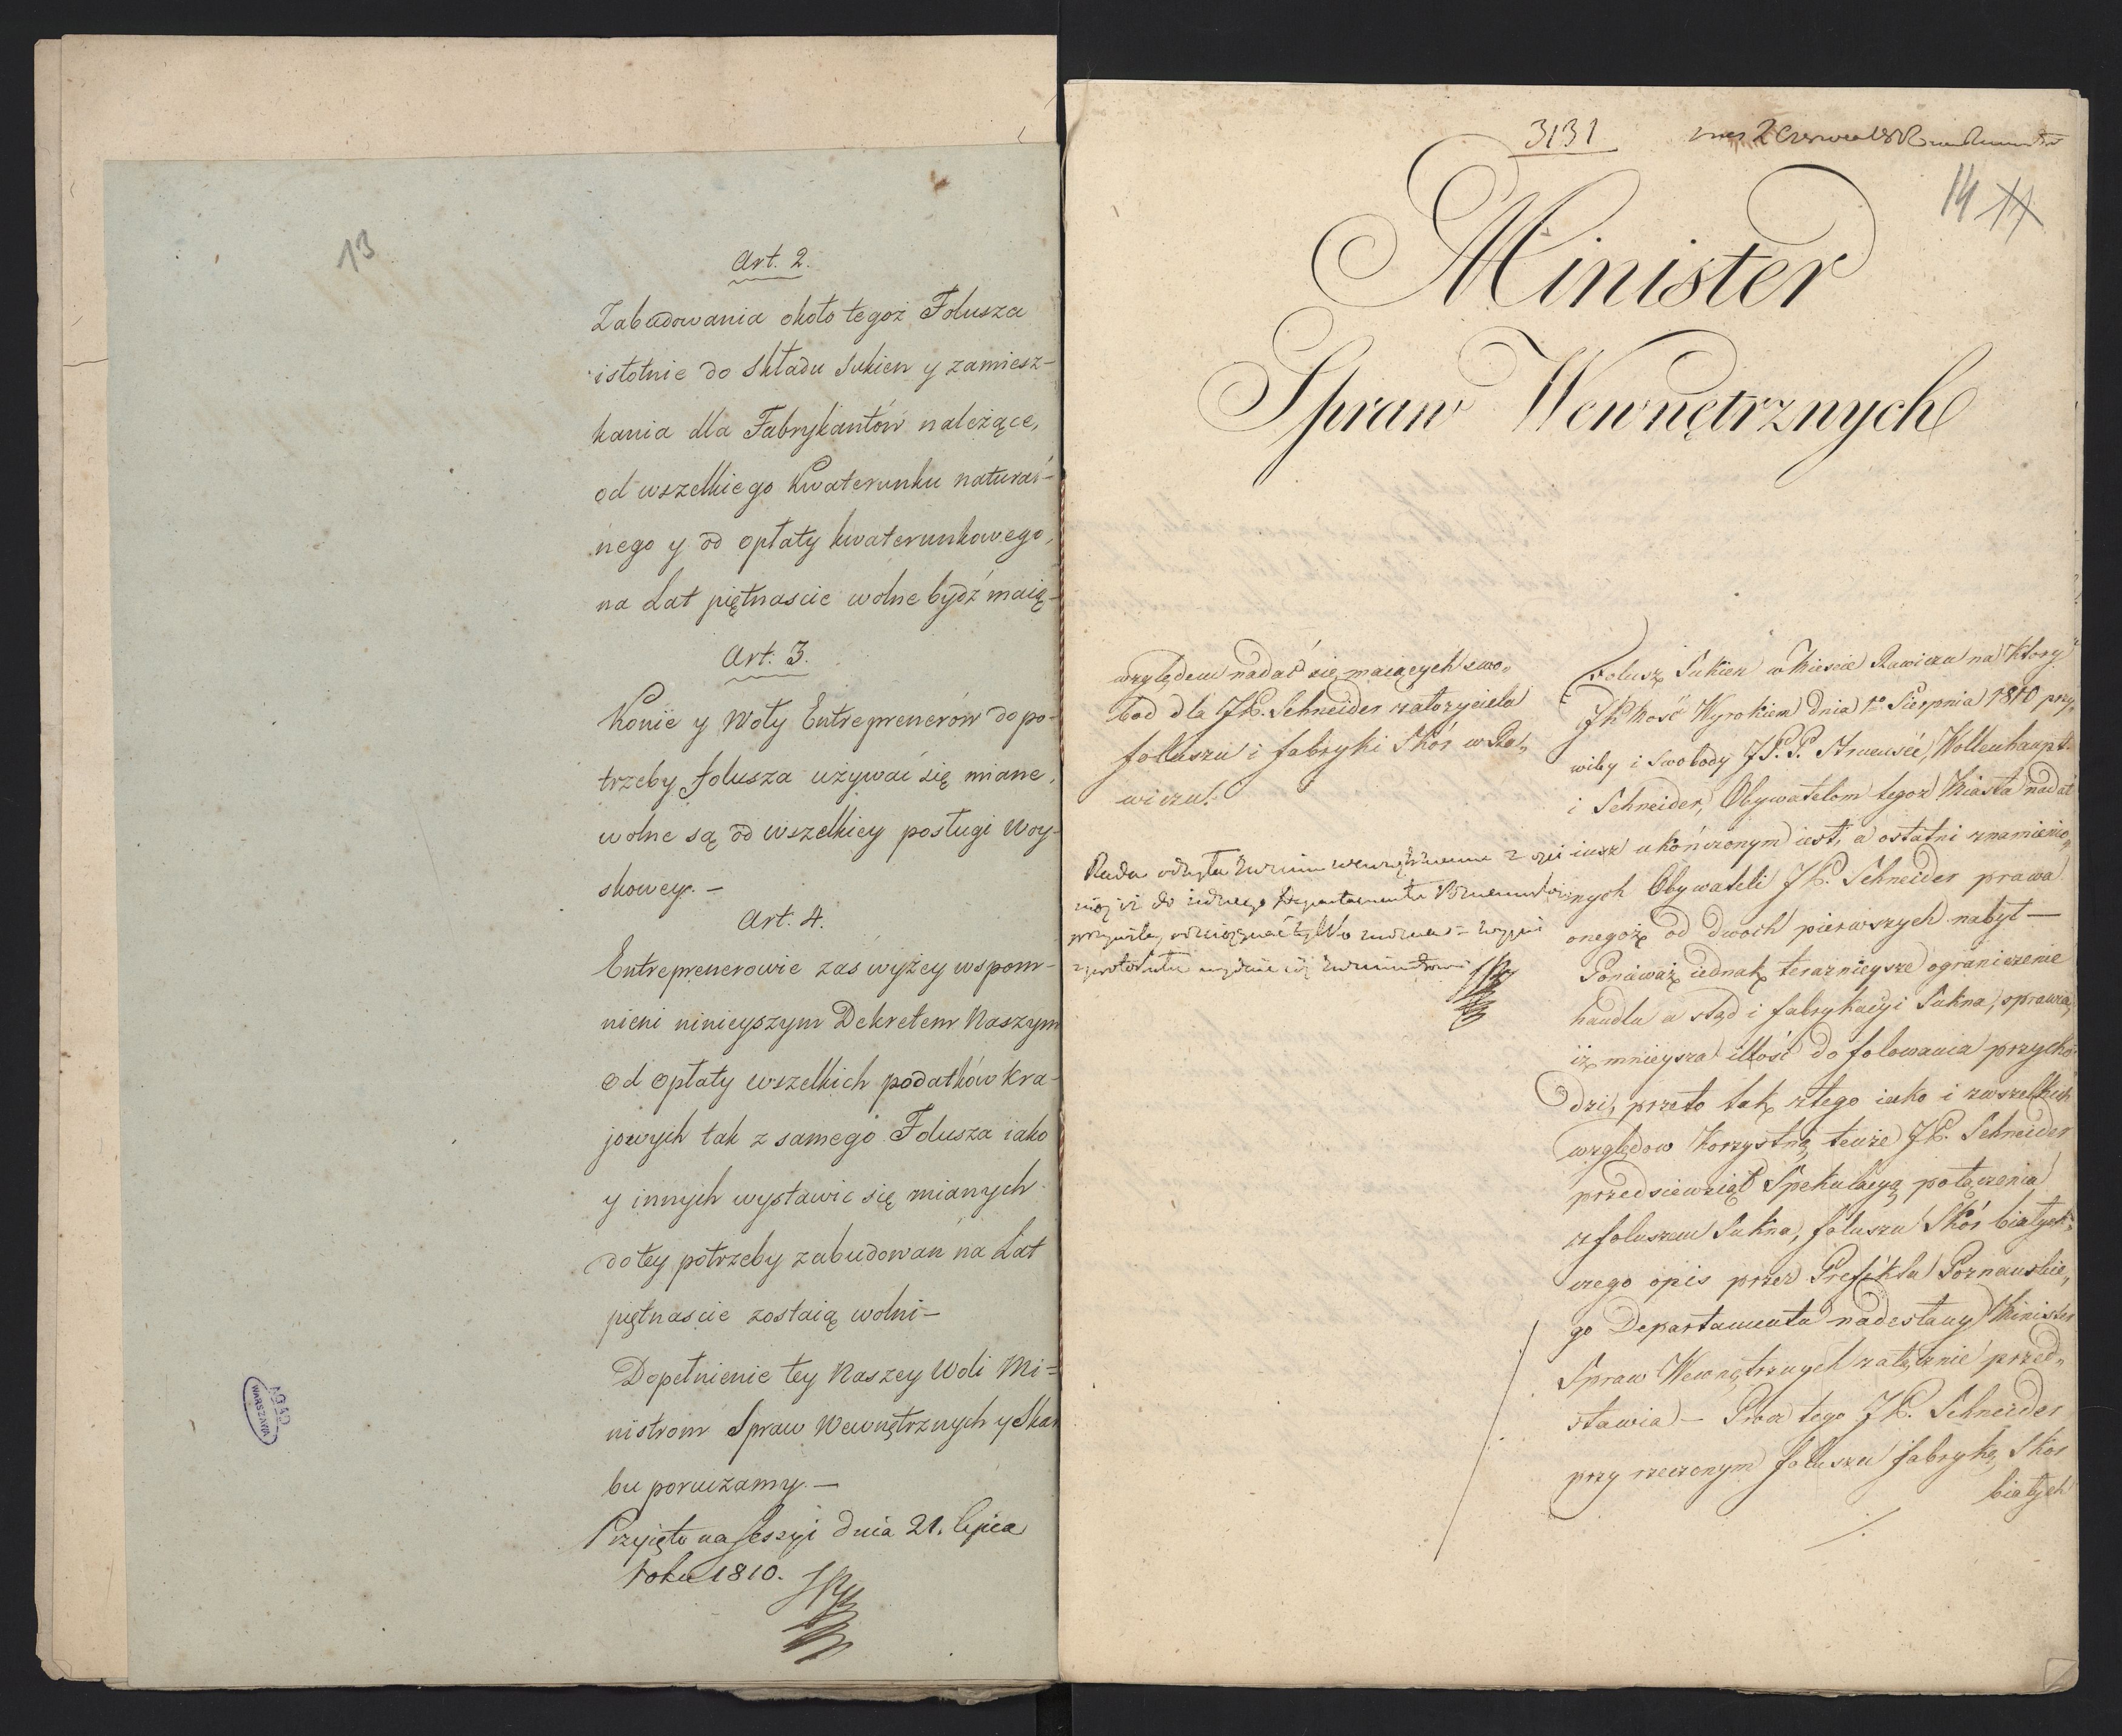 13
Art. 2.
Zabudowania około tegoż Folusza
istotnie do składu sukien y zamiesz-
kania dla Fabrykantów należące,
od wszelkiego kwaterunku natural-
nego y od opłaty kwaterunkowego,
na Lat piętnascie wolne bydź maią-
Art. 3.
Konie y Woły Entreprenerów do po-
trzeby folusza używać się miane,
wolne są od wszelkiey posługi Woy-
skowey. -
Art. 4.
Entreprenerowie zaś wyżey wspom-
nieni ninieyszym Dekretem Naszym
od opłaty wszelkich podatków kra-
jowych tak z samego Folusza iako
y innych wystawić się mianych
do tey potrzeby zabudowań na Lat
piętnascie zostaią wolni-
Dopełnienie tey Naszey Woli Mi=
nistrom Spraw Wewnętrznych y Skar
bu poruczamy. -
Przyięto na Sessyi dnia 21. lipca
roku 1810.
AGAD
WARSZAWA
3131
2 Czerwca
14 11
Minister
Spraw Wewnętrznych
względem nadać się maiących swo„
bod dla JP. Schneider założyciela
folluszu i fabryki Skór w Ra„
wiczu.
Rada odsyła
do Departamentu
Folusz Sukien w Mieście Rawiczu na ktory
JK Mość Wyrokiem dnia 1o Sierpnia 1810 przy„
wiley i Swobody J.P.P. Wollenhaupt
i Schneider, Obywatelom tegoż Miasta nadał
iusz ukończonym iest, a ostatni z namienio„
nych Obywateli JP. Schneider prawa
onegoż od dwoch pierwszych nabył —
Ponieważ iednak teraznieysze ograniczenie
handlu a stąd i fabrykacyi Sukna, sprawia,
iż mnieysza illość do folowania przycho„
dzi, przeto tak z tego iako i z wszelkich
względow korzystną tenże JP. Schneider
przedsiewziął Spekulacyą połączenia
z foluszem Sukna, foluszu Skór białych„
czego opis przez Prefekta Poznańskie„
go Departamentu nadesłany Minister
Spraw Wewnętrznych załącznie przed„
stawia — Procz tego JP. Schneider
przy rzeczonym folluszu fabrykę Skór
białych